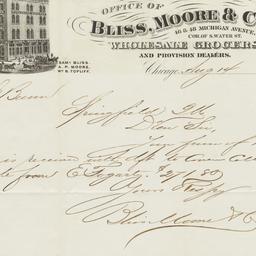 OFFICE OF
BLISS, MOORE & C
16 & 18 MICHIGAN AVENUE,
COR. OF S. WATER ST.
WHOLESALE GROCERS
AND PROVISION DEALERS.
SAML BLISS.
A. P. MOORE.
WM B. TOPLIFF.
Chicago, Aug 14
Springfield Ills
Dear Sir
Your favor of
is received with
from E Fogarty. $271.80
Yours
Bliss Moore & Co